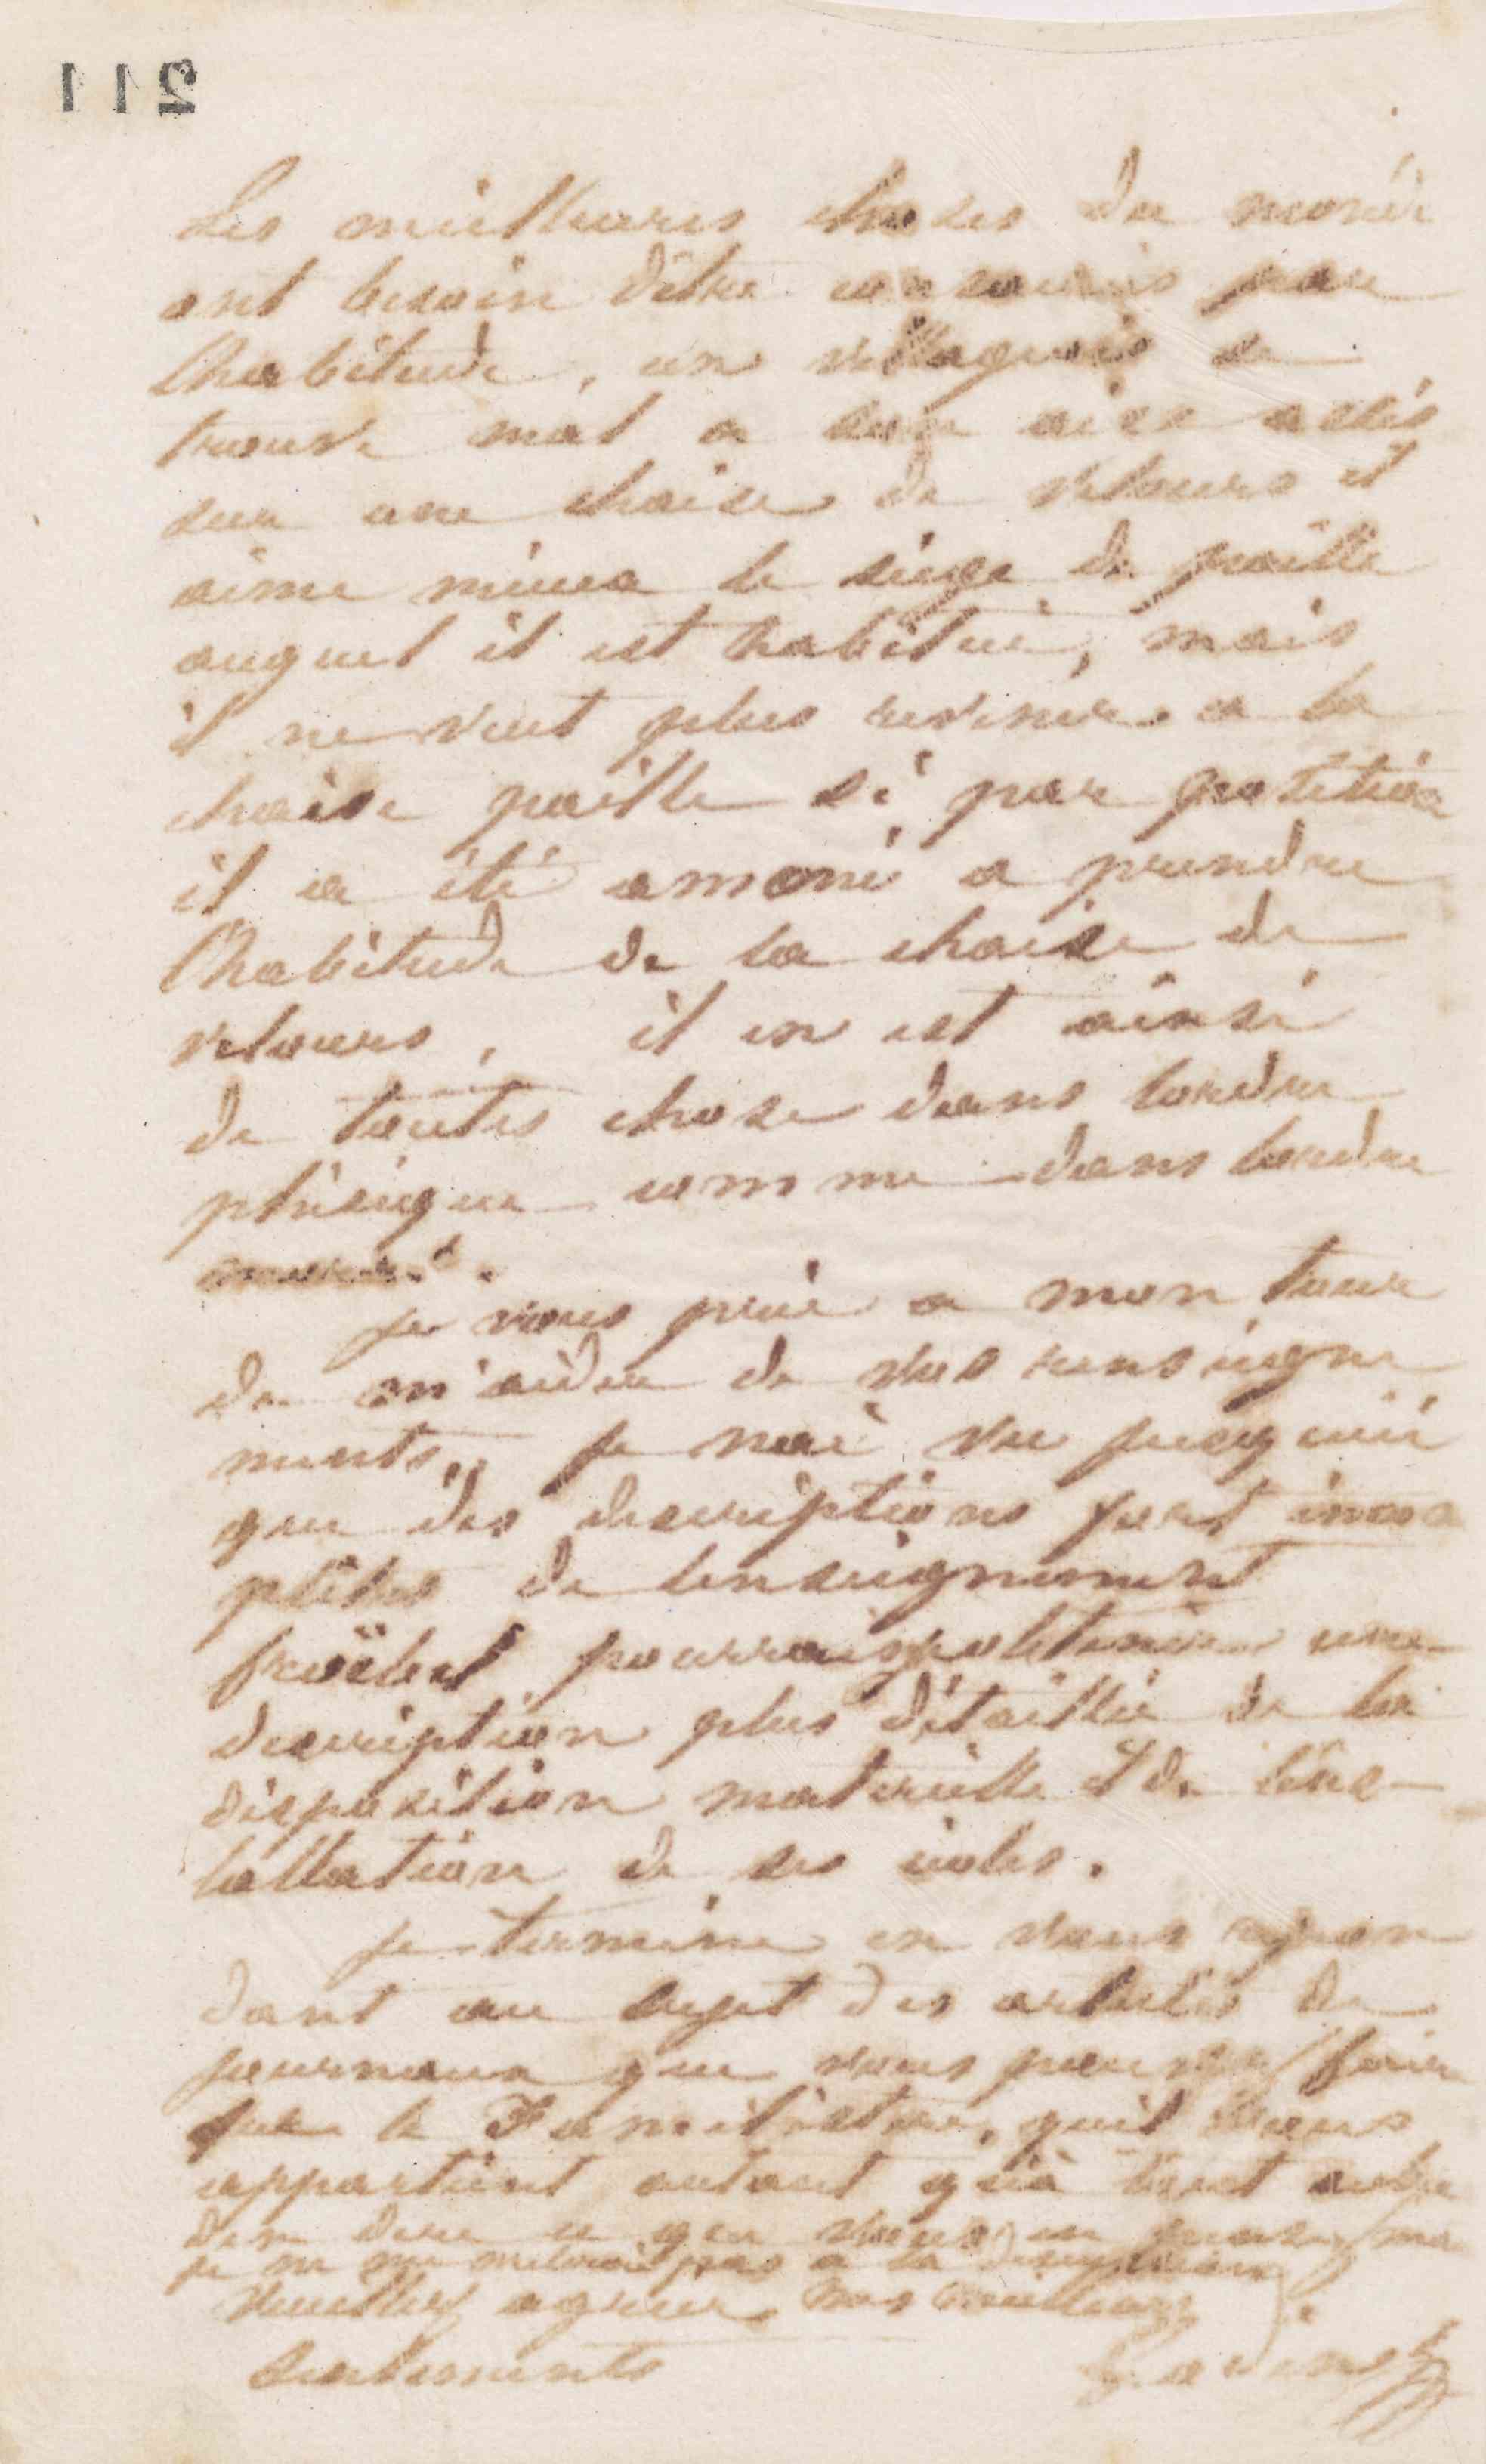 211
Les meilleures choses du monde
ont besoin d'être consacrés par
l'habitude, un villageois se
trouve mal a son aise assis
sur une chaise de velours et
aime mieux le siège de paille
auquel il est habitué, mais
il ne veut plus revenir a la
chaise paille si par
il a été amené a prendre
l'habitude de la chaise de
velours, il en est ainsi
de toutes chose dans lordre
phisique comme dans lordre
moral.
je vous prie a mon tour
de m'aider de vos renseigne
ments, je nai vu jusquici
que des descriptions fort incom
plètes de lenseignement
froëbel pourrais je obtenir une
description plus détaillée de la
disposition materielle et de lins-
tallation de ses écoles.
je termine en vous repon
dant au sujet des articles de
journaux que vous pouvez faire
sur le Familistère, quil vous
appartient autant qu'à tout autre
den dire ce que vous en pensez
je ne me pas a la
Veuillez agréer mes meilleurs
sentiments
Godin